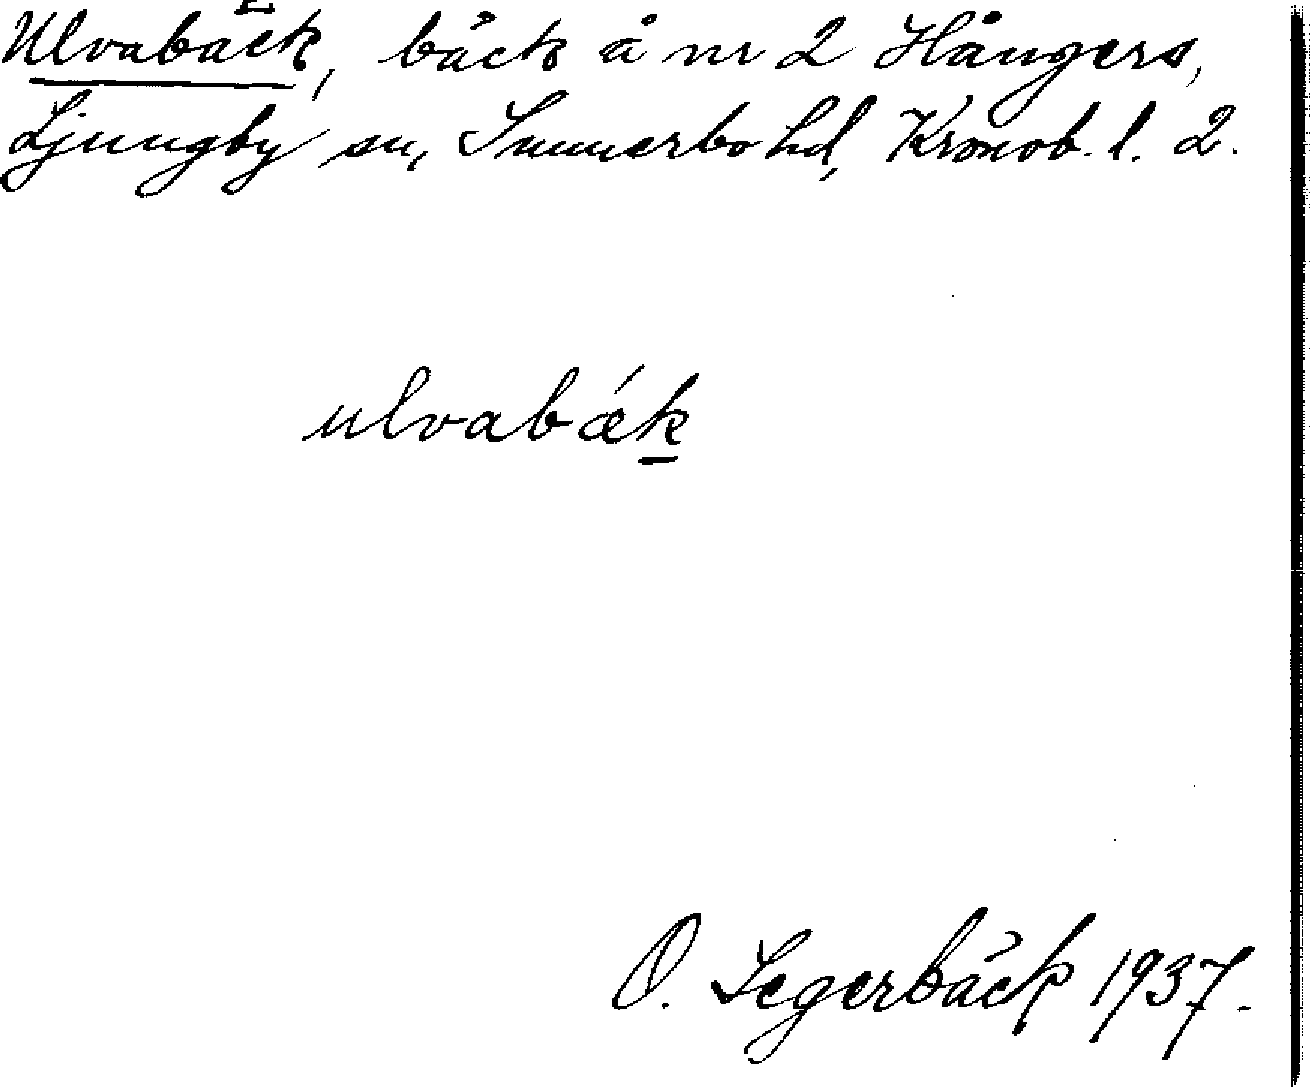 Ulvabäck, bäck å nr 2 Hångers,
Ljungby sn, Sunnerbo hd, Kronob. l. 2.
ulvabǽk
O. Segerbäck 1937.